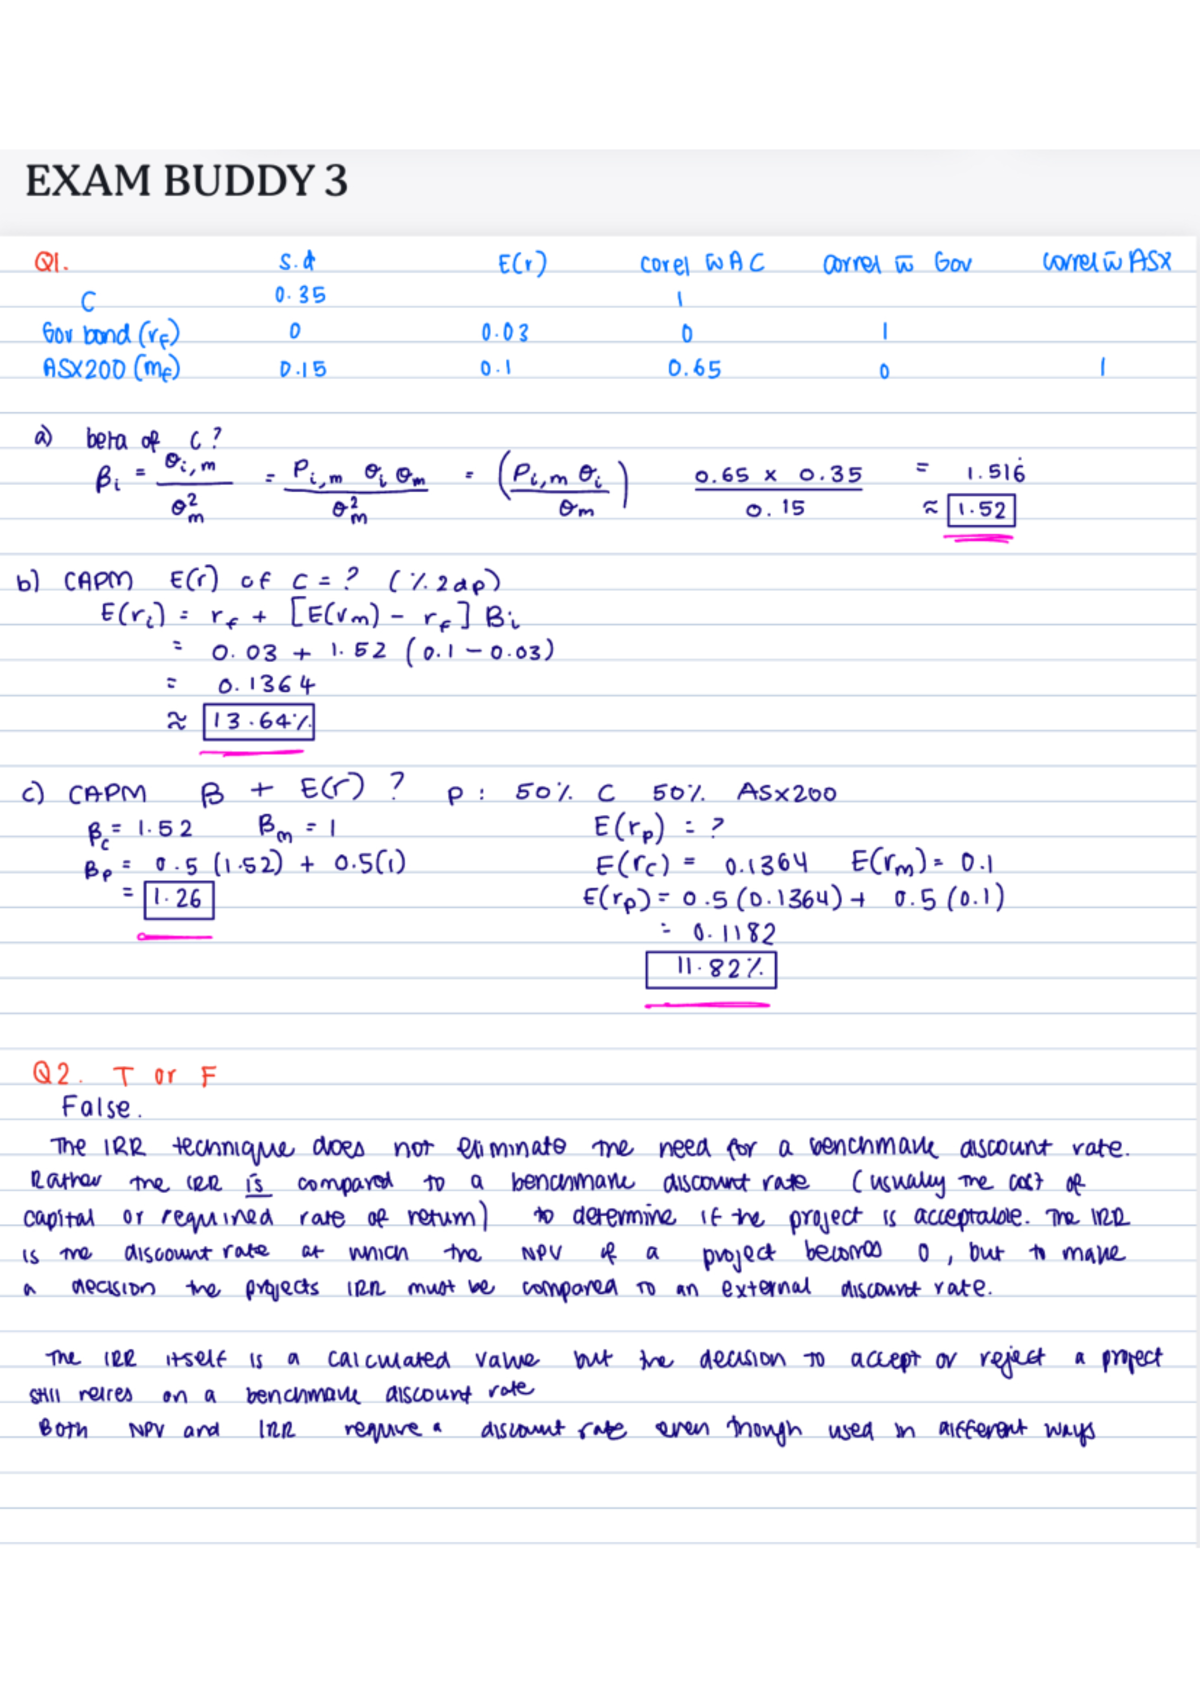 EXAM BUDDY 3
Q1. s.d E(r) corel w̄ AC correl w̄ Gov correl w̄ ASX
C 0.35 1
Gov bond (rF) 0 0.03 0 1
ASX200 (mF) 0.15 0.1 0.65 0 1
a) beta of C?
βi = θi,m / θ²m = Pi,m θi θm / θ²m = (Pi,m θi / θm) 0.65 x 0.35 / 0.15 = 1.516̇
≈ 1.52
b) CAPM E(r) of C = ? (% 2dp)
E(ri) = rf + [E(rm) - rf] Bi
= 0.03 + 1.52 (0.1 - 0.03)
= 0.1364
≈ 13.64%
c) CAPM B + E(r) ? P: 50% C 50% ASX200
βc = 1.52 Bm = 1 E(rp) = ?
Bp = 0.5 (1.52) + 0.5(1) E(rc) = 0.1364 E(rm) = 0.1
= 1.26 E(rp) = 0.5 (0.1364) + 0.5 (0.1)
= 0.1182
11.82%
Q2. T or F
False.
The IRR technique does not eliminate the need for a benchmark discount rate.
Rather the IRR is compared to a benchmark discount rate (usually the cost of
capital or required rate of return) to determine if the project is acceptable. The IRR
is the discount rate at which the NPV of a project becomes 0, but to make
a decision the projects IRR must be compared to an external discount rate.
The IRR itself is a calculated value but the decision to accept or reject a project
still relies on a benchmark discount rate
Both NPV and IRR require a discount rate even though used in different ways